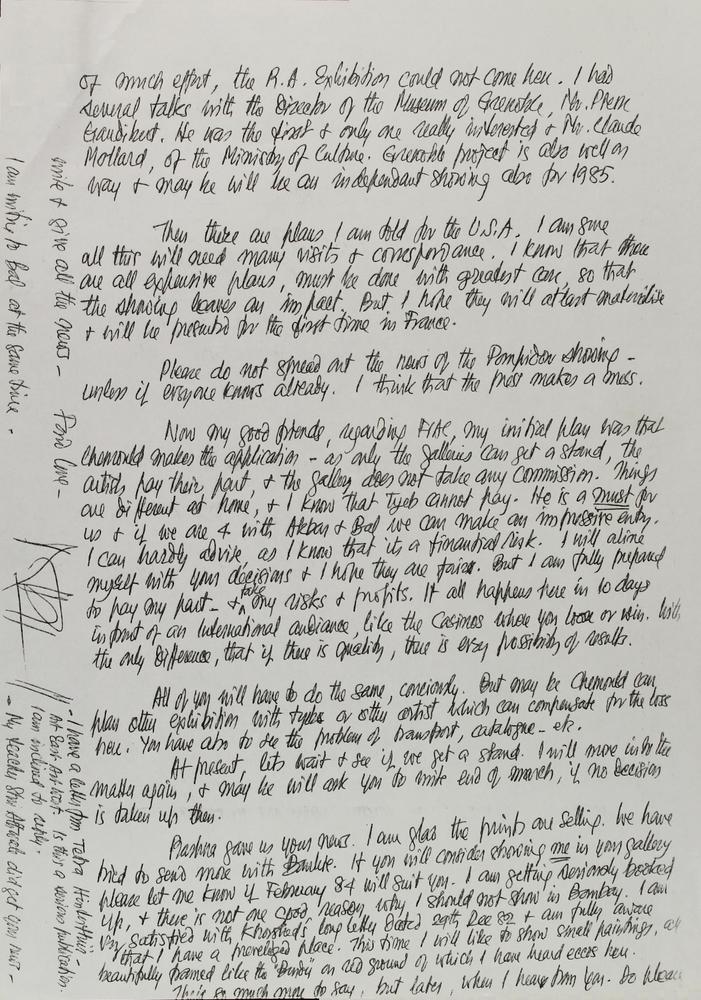 of much effort, the R.A. Exhibition could not come here. I had
several talks with the Director of the Museum of Grenoble, Mr. Pierre
Gaudibert. He was the first & only one really interested & Mr. Claude
Mollard, of the Ministry of Culture. Grenoble project is also well on
way & may be will be an independant showing also for 1985.
Then there are plans I am told for the U.S.A. I am sure
all this will need many visits & correspondance. I know that these
are all expensive plans, must be done with greatest care, so that
the showing leaves an impact. But I hope they will atlast materialise
& will be presented for the first time in France.
Please do not spread out the news of the Pompidou showing -
unless if everyone knows already. I think that the press makes a mess.
Now my good friends, regarding FIAC, my initial plan was that
Chemould makes the application - as only the galleries can get a stand, the
artists pay their part, & the gallery does not take any commission. Things
are different at home, & I know that Tyeb cannot pay. He is a must for
us & if we are 4 with Akbar & Bal we can make an impressive entry.
I can hardly advise, as I know that its a financial risk. I will aline
myself with your decisions & I hope they are fair. But I am fully prepared
to pay my part - & take my risks & profits. It all happens here in 10 days
infront of an International audiance, like the Casinos where you loose or win. With
the only difference, that if there is quality, there is every possibility of results.
All of you will have to do the same, conciously. But may be Chemould can
plan other exhibition with Tyeb or other artist which can compensate for the loss
here. You have also to see the problem of transport, catalogue - etc.
At present, lets wait & see if we get a stand. I will move into the
matter again, & may be will ask you to write end of march, if no decision
is taken up then.
Prashna gave us your news. I am glad the prints are selling. We have
tried to send more with. If you will consider showing me in your gallery
please let me know if February 84 will suit you. I am getting seriously booked
up, & there is not one good reason why I should not show in Bombay. I am
very satisfied with Khorshed's long letter dated 29th Dec 82 & am fully aware
that I have a priveleged place. This time I will like to show small paintings, all
beautifully framed like the "Bindu" on red ground of which I have heard ecos here.
There is so much more to say, but later, when I hear from you. Do please
write & give all the news - Fond love -
I am writing to Bal at the same time -
- I have a letter from Tetra
At East Art West. Is this a serious publication.
I am inclined to reply.
- My teacher Shri did get your